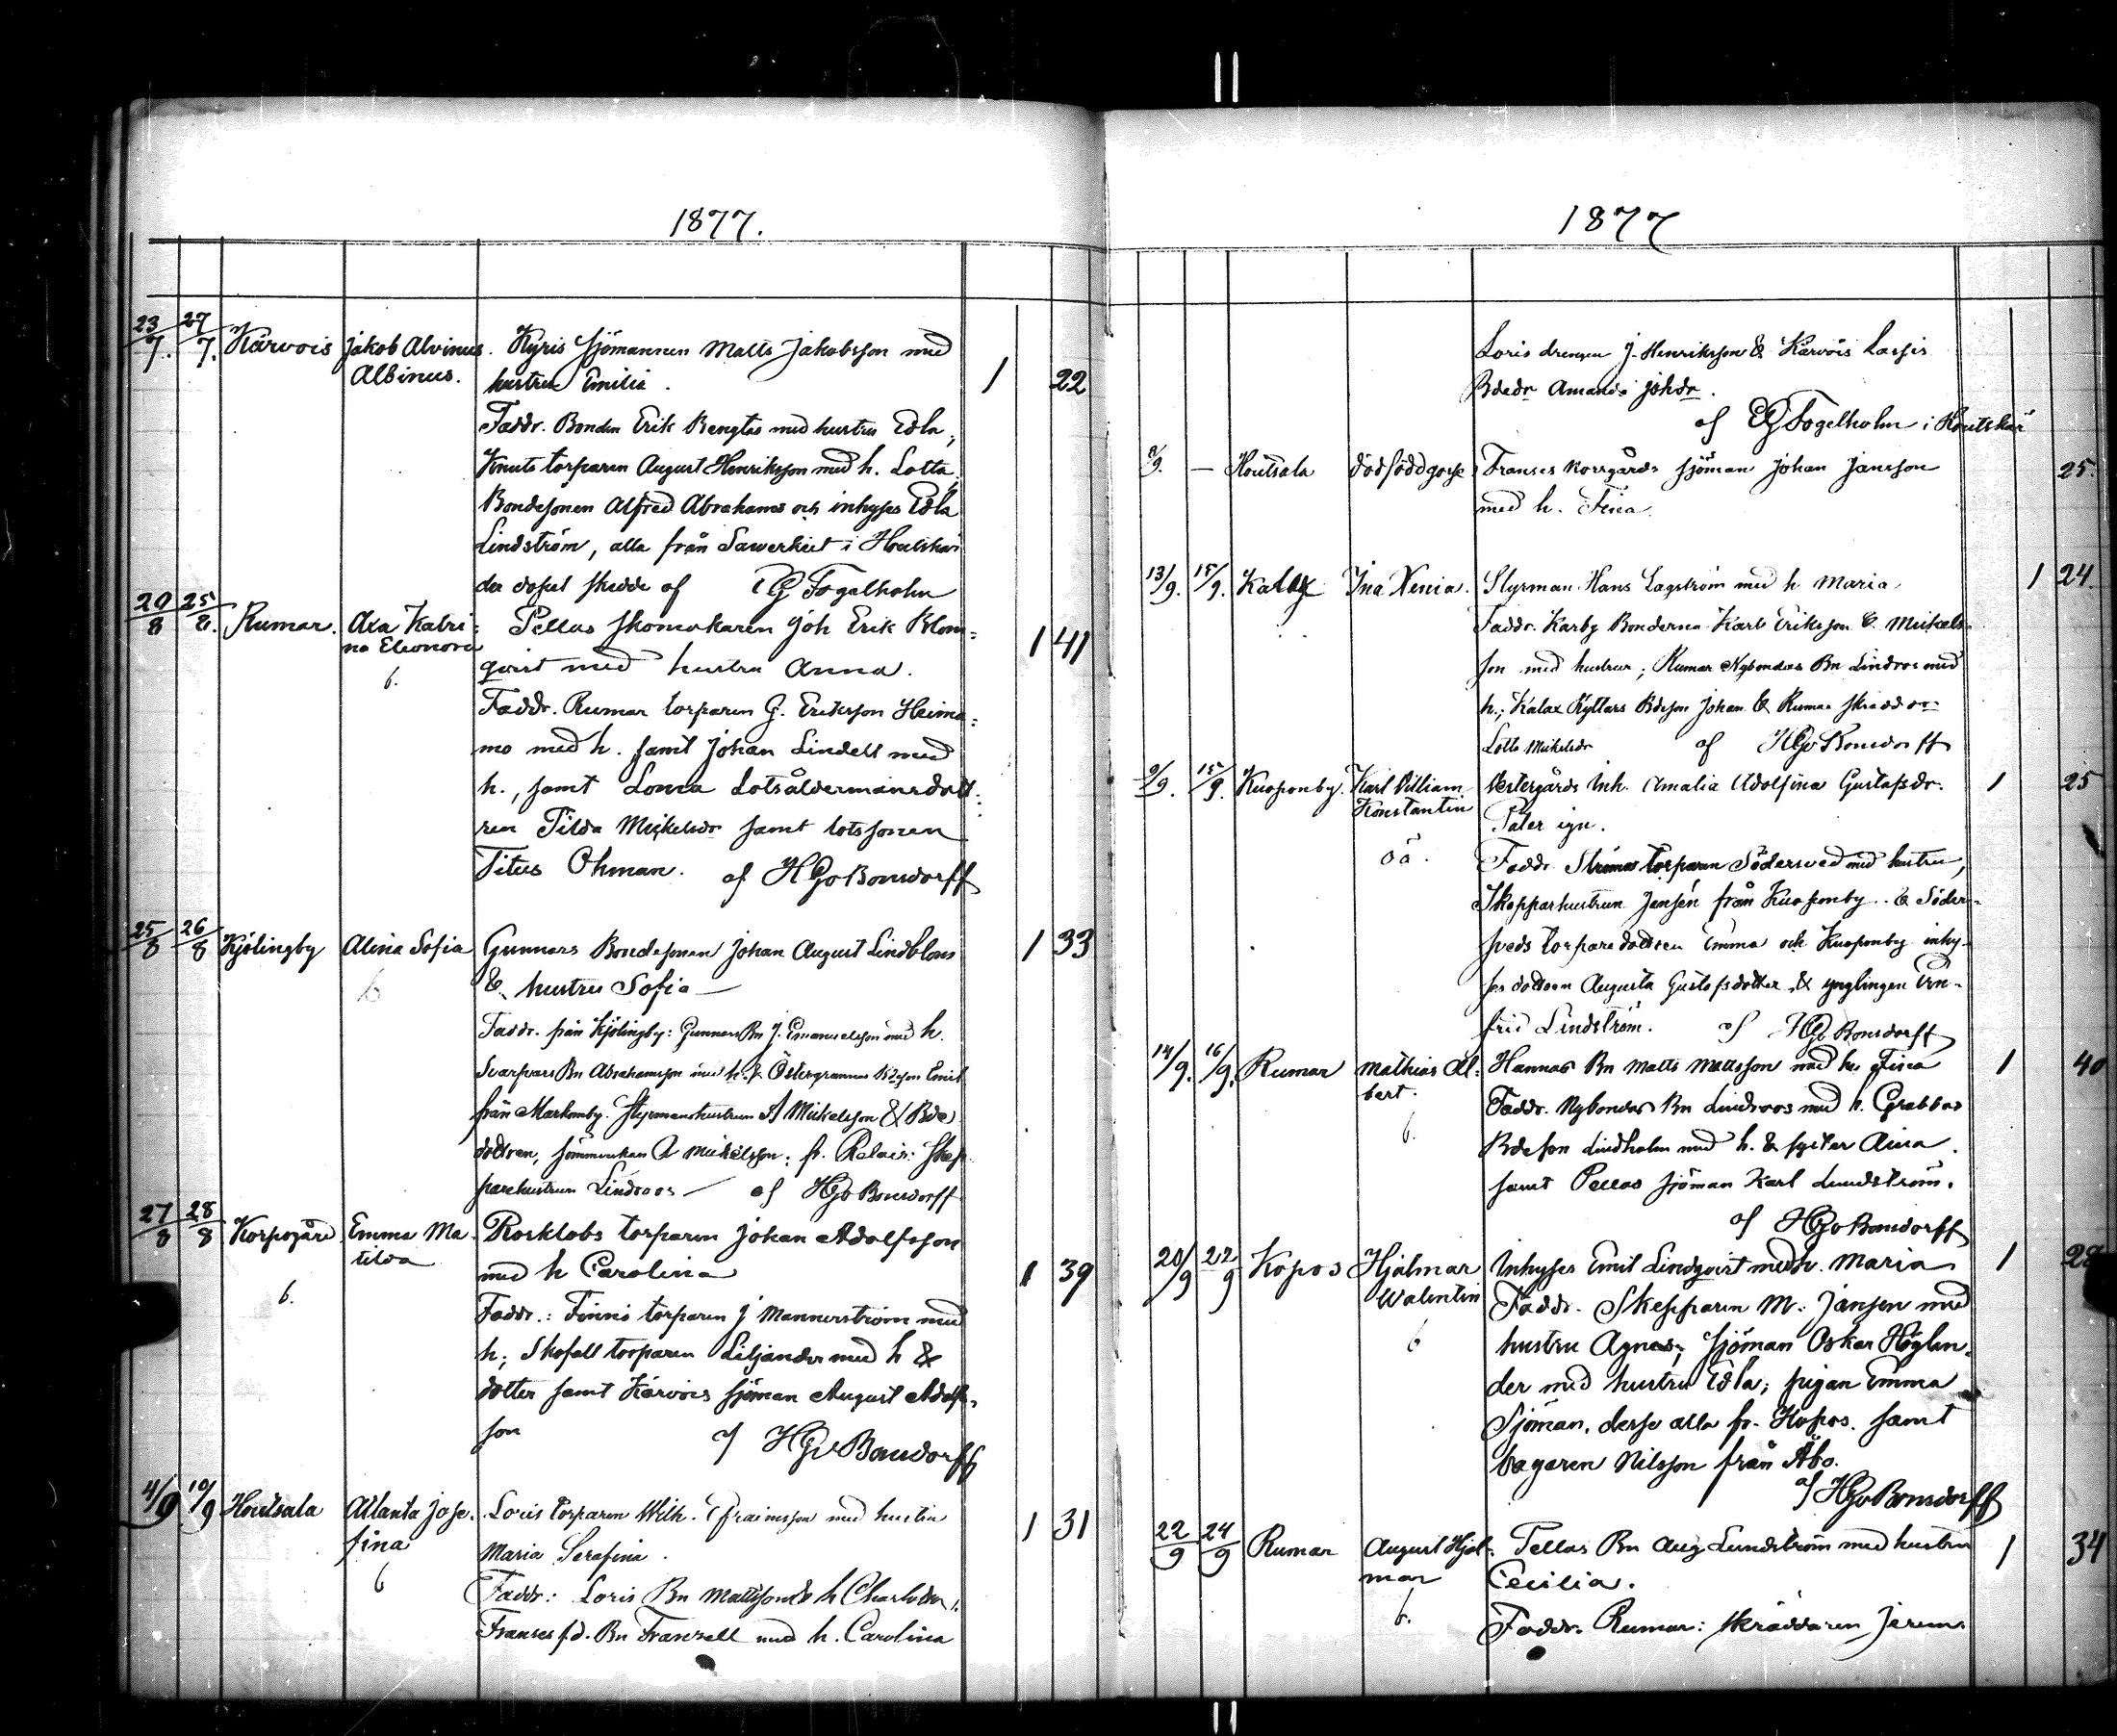 1877.
23/7. 27/7. Kårvois Jakob Alvinus Albinus. Kyris sjömannen Matts Jakobsson med
hustru Emilia. 1 22
Faddr. Bonden Erik Bengtas med hustru Edla,
Knuts torparen August Henriksson med h. Lotta,
Bondesonen Alfred Abrahams och inhyses Edla
Lindström, alla från Sawerkeit i Houtskär
der dopet skedde af EG Fogelholm
20/8 25/8. Rumar. Axa Katri=
na Eleonora 6. Pellas skomakaren Joh Erik Blom=
qvist med hustru Anna. 1 41
Faddr. Rumar torparen G. Eriksson Heima=
mo med h. samt Johan Lindell med
h., samt Loma Lotsåldermansdott
ren Tilda Mickelsdr samt lotssonen
Titus Öhman. af HGvBonsdorff
25/8 26/8 Kjölingby Alina Sofia b Gunnars Bondesonen Johan August Lindblom 1 33
& hustru Sofia —
Faddr. från Kjölingby: Gunnars Bn J. Emanuelsson med h.
Svarfvars Bn Abrahamsson med h. & Östergrannas Bdeson Emil
från Markomby. Styrmanshustrun A Mickelsson & Bde
dottren, sömmerskan A Mickelsson: fr. Relais: Skep
parehustrun Lindroos — af HGvBonsdorff
27/8 28/8 Korpogård. Emma Ma
tilda 6. Rosklobs torparen Johan Adolfsson
med h Carolina 1 39
Faddr.: Finnö torparen J Mannerström med
h; Skofall torparen Liljander med h &
dotter samt Kårvois sjöman August Adolfs-
son af HGvBonsdorff
4/9 10/9 Houtsala Atlanta Jose
fina 6 Loris torparen Wilh. Efraimsson med hustru 1 31
Maria Serafina.
Faddr: Loris Bn Mattsson & h Charlotta,
Franses fd. Bn Franzell med h. Carolina
1877
Loris drengen J. Henriksson & Kårvois Lassis
Bdedr Amanda Johdr.
af EG Fogelholm i Houtskär
8/9. — Houtsala dödfödd gosse Franses Norrgårds sjöman Johan Jansson 25.
med h. Fina.
13/9. 15/9. Kalax Ina Xenia. Styrman Hans Lagström med h Maria. 1 24.
Faddr. Karby Bönderna Karl Eriksson & Mickels-
son med hustrur; Rumar Nybondas Bn Lindroos med
h.; Kalax Kyttars Bdeson Johan & Rumar skräddar
Lotta Mickelsdr af HGvBonsdorff
9/9. 15/9. Kuoponby. Karl William
Konstantin oä. Vestergårds Inh. Amalia Adolfina Gustafsdr. 1 25
Pater ign.
Faddr. Strömma torparen Södersved med hustru,
Skepparhustrun Jansén från Kuoponby. & Söder-
sveds torparedottren Emma och Kuoponby inhy-
ses dottren Augusta Gustafsdotter & ynglingen Ern-
frid Lindström. af HGvBonsdorff
14/9. 16/9. Rumar Mathias Al=
bert. 6. Hannas Bn Matts Mattsson med hu Fina 1 40
Faddr. Nybondas Bn Lindroos med h. Grabbas
Bdeson Lindholm med h. & syster Aina.
samt Pellas sjöman Karl Lundström.
af HGvBonsdorff
20/9 22/9 Kopos Hjalmar
Walentin 6 Inhyses Emil Lindqvist med h. Maria 1 28
Faddr. Skepparen M. Jansen med
hustru Agnes; sjöman Oskar Höglun-
der med hustru Edla; pigan Emma
Sjöman, desse alla fr. Kopos. samt
bagaren Nilsson från Åbo.
af HGvBonsdorff
22/9 24/9 Rumar August Hjal-
mar 6. Pellas Bn Aug Lundström med hustru 1 34
Cecilia.
Faddr. Rumar: skräddaren Jerems